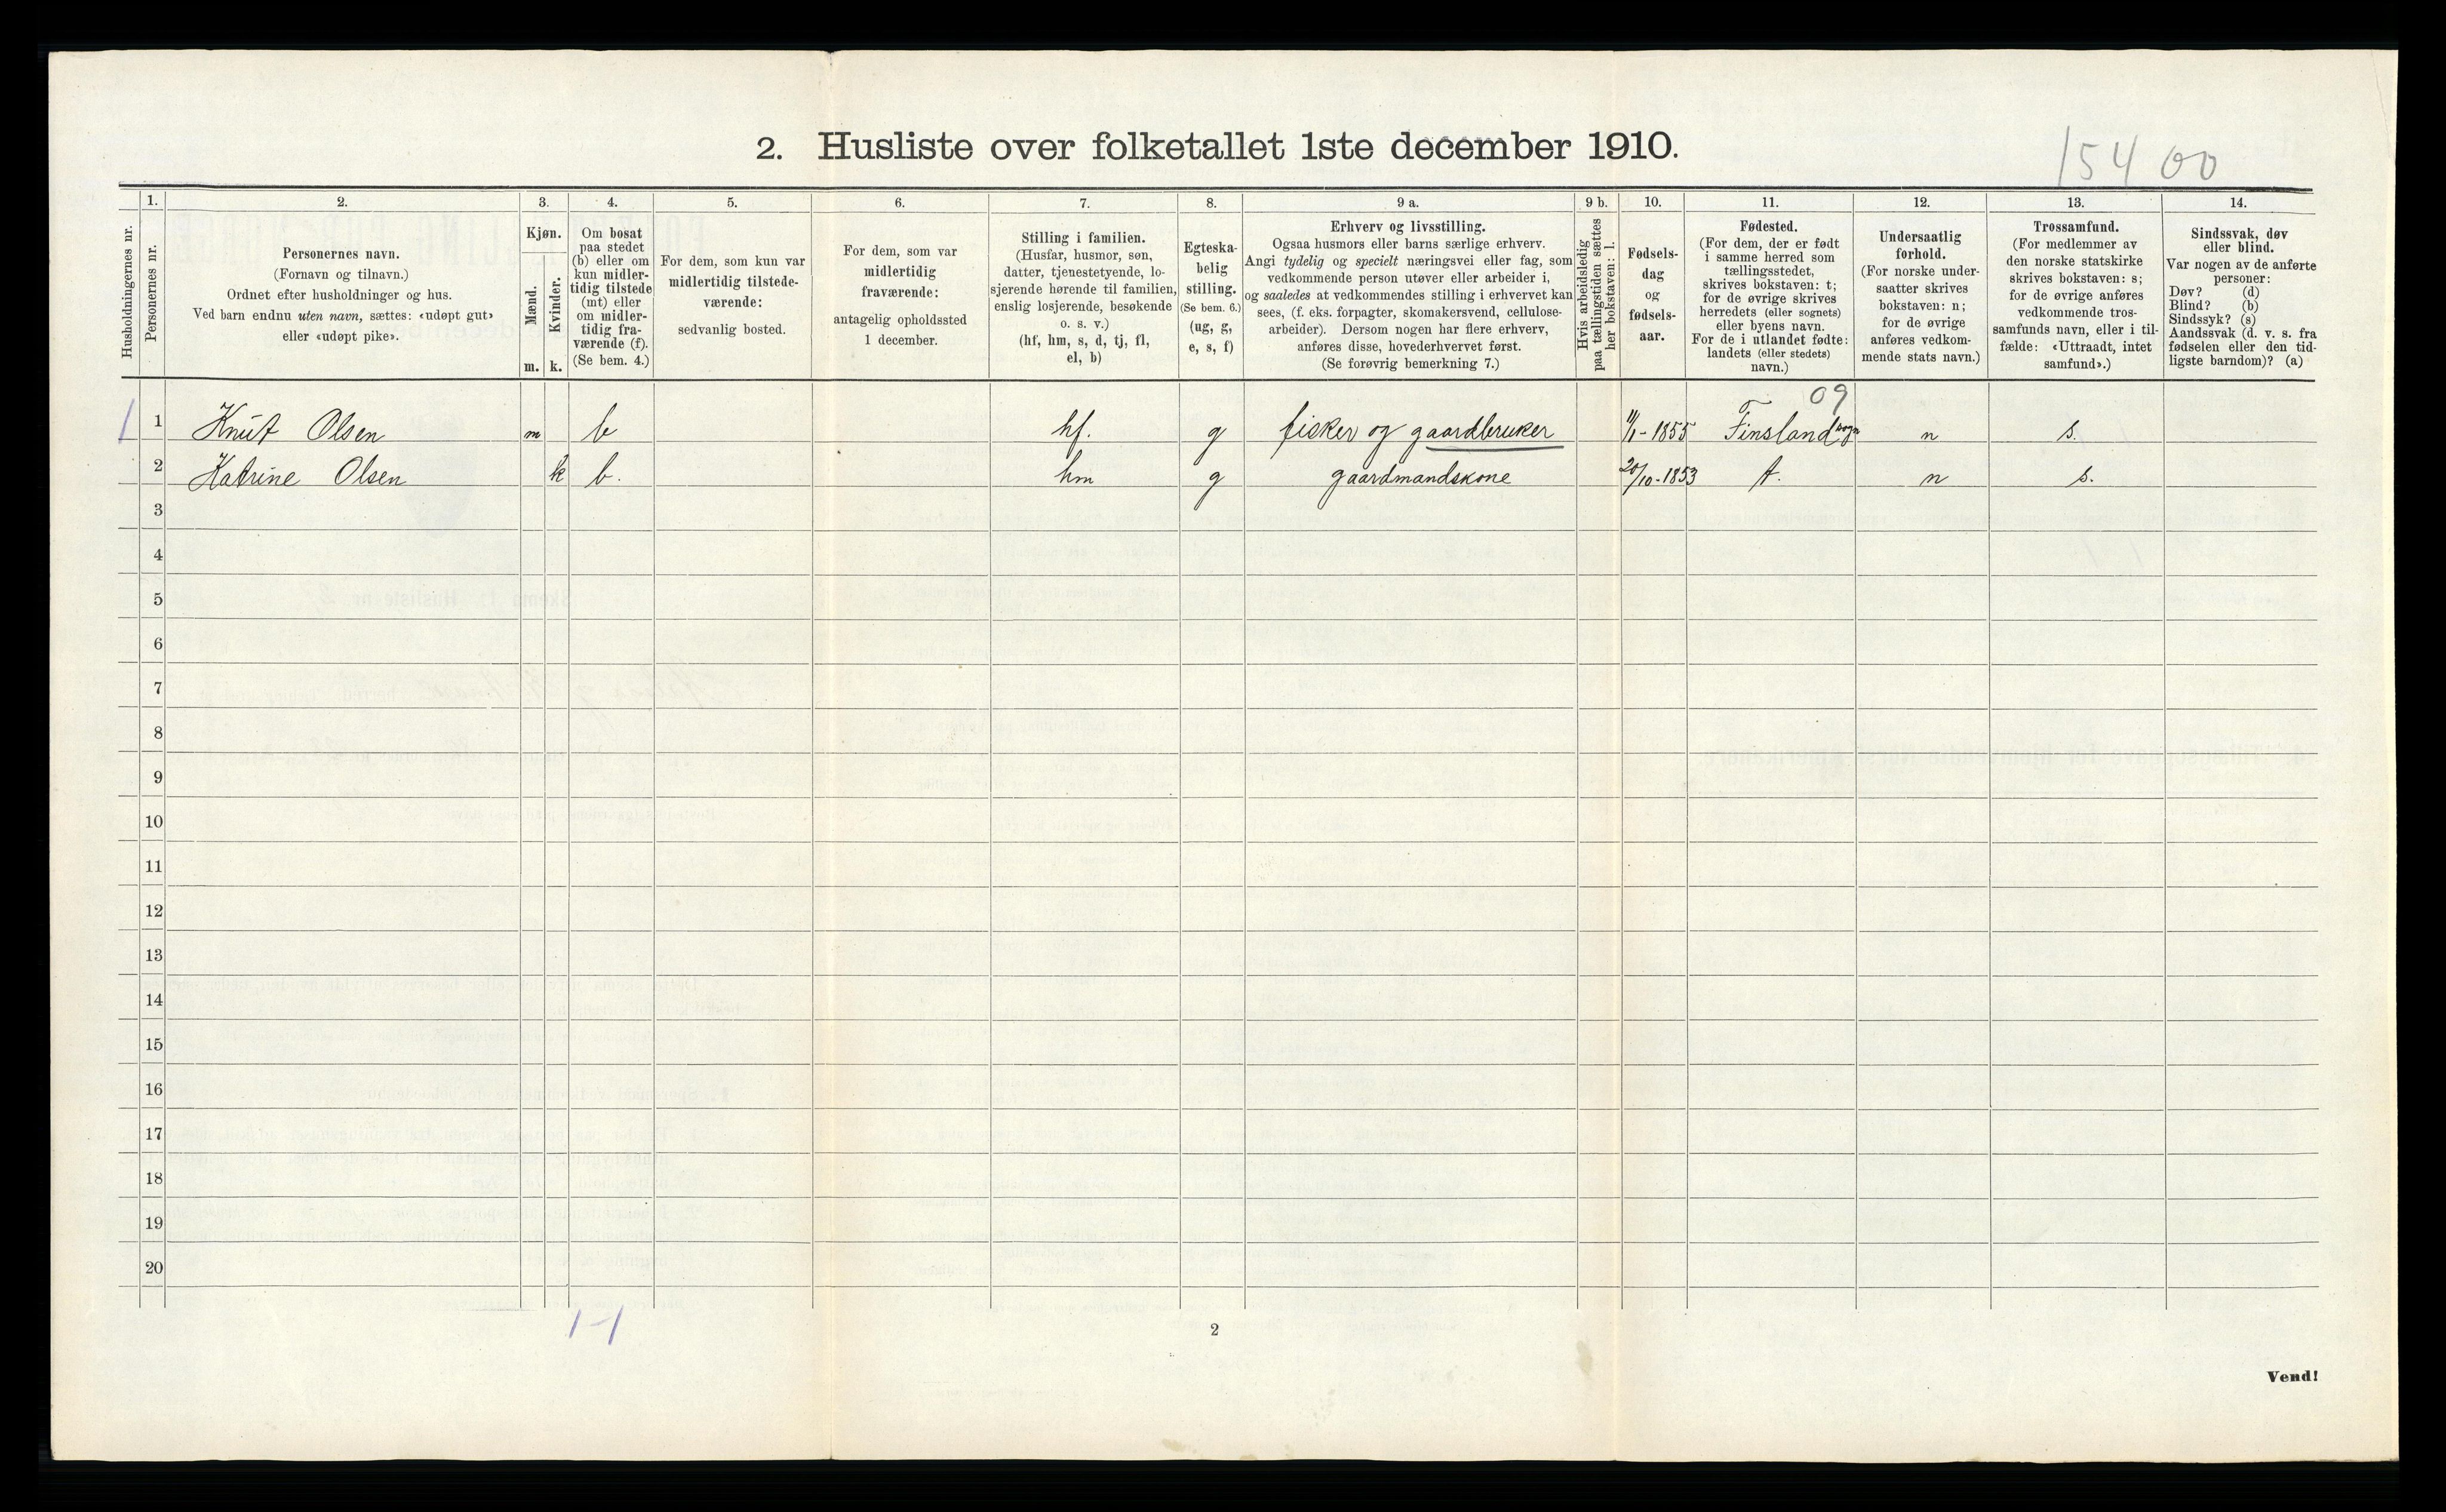 2. Husliste over folketallet 1ste december 1910.
154 00
Husholdningernes nr.
1.
Personernes nr.
2.
Personernes navn.
(Fornavn og tilnavn.)
Ordnet efter husholdninger og hus.
Ved barn endnu uten navn, sættes: «udøpt gut»
eller «udøpt pike».
3.
Kjøn.
Mænd.
Kvinder.
m. k.
4.
Om bosat
paa stedet
(b) eller om
kun midler-
tidig tilstede
(mt) eller
om midler-
tidig fra-
værende (f).
(Se bem. 4.)
5.
For dem, som kun var
midlertidig tilstede-
værende:
sedvanlig bosted.
6.
For dem, som var
midlertidig
fraværende:
antagelig opholdssted
1 december.
7.
Stilling i familien.
(Husfar, husmor, søn,
datter, tjenestetyende, lo-
sjerende hørende til familien,
enslig losjerende, besøkende
o. s. v.)
(hf, hm, s, d, tj, fl,
el, b)
8.
Egteska-
belig
stilling.
(Se bem. 6.)
(ug, g,
e, s, f)
9 a.
Erhverv og livsstilling.
Ogsaa husmors eller barns særlige erhverv.
Angi tydelig og specielt næringsvei eller fag, som
vedkommende person utøver eller arbeider i,
og saaledes at vedkommendes stilling i erhvervet kan
sees, (f. eks. forpagter, skomakersvend, cellulose-
arbeider). Dersom nogen har flere erhverv,
anføres disse, hovederhvervet først.
(Se forøvrig bemerkning 7.)
9 b.
Hvis arbeidsledig
paa tællingstiden sættes
her bokstaven: l.
10.
Fødsels-
dag
og
fødsels-
aar.
11.
Fødested.
(For dem, der er født
i samme herred som
tællingsstedet,
skrives bokstaven: t;
for de øvrige skrives
herredets (eller sognets)
eller byens navn.
For de i utlandet fødte:
landets (eller stedets)
navn.)
12.
Undersaatlig
forhold.
(For norske under-
saatter skrives
bokstaven: n;
for de øvrige
anføres vedkom-
mende stats navn.)
13.
Trossamfund.
(For medlemmer av
den norske statskirke
skrives bokstaven: s;
for de øvrige anføres
vedkommende tros-
samfunds navn, eller i til-
fælde: «Uttraadt, intet
samfund».)
14.
Sindssvak, døv
eller blind.
Var nogen av de anførte
personer:
Døv? (d)
Blind? (b)
Sindssyk? (s)
Aandssvak (d. v. s. fra
fødselen eller den tid-
ligste barndom)? (a)
09
1 1 Knut Olsen m b hf. g fisker og gaardbruker 11/1-1855 Finsland sogn n s.
2 Katrine Olsen k b. hm g gaardmandskone 20/10-1853 t. n s.
3
4
5
6
7
8
9
10
11
12
13
14
15
16
17
18
19
20
1-1
2
Vend!